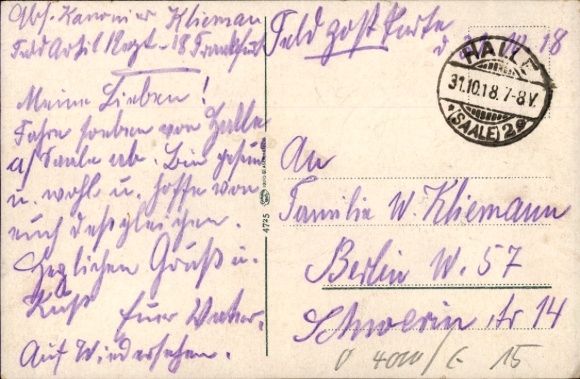 Abs. Kanonier Kliemann
Feld Artil Regt. 18 Frankfurt
Meine Lieben!
Fahre soeben von Halle
a/ Saale ab. Bin gesund
u. wohl u. hoffe von
euch desgleichen.
Herzlichen Gruß u.
Kuß Euer Vater.
Auf Wiedersehen.
4725
Feldpost Karte
d. 10. 18
HALLE
31.10.18. 7-8V.
(SAALE) 2
An
Familie W. Kliemann
Berlin W. 57
Schwerin str 14
15